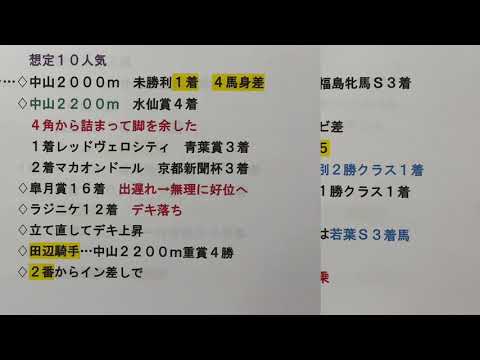 想定１０人気
…◇中山２０００ｍ　未勝利１着　４馬身差
◇中山２２００ｍ　水仙賞４着
４角から詰まって脚を余した
１着レッドヴェロシティ　青葉賞３着
２着マカオンドール　京都新聞杯３着
◇皐月賞１６着　出遅れ→無理に好位へ
◇ラジニケ１２着　デキ落ち
◇立て直してデキ上昇
◇田辺騎手…中山２２００ｍ重賞４勝
◇２番からイン差しで
福島牝馬Ｓ３着
ビ差
５
別２勝クラス１着
１勝クラス１着
は若葉Ｓ３着馬
乗